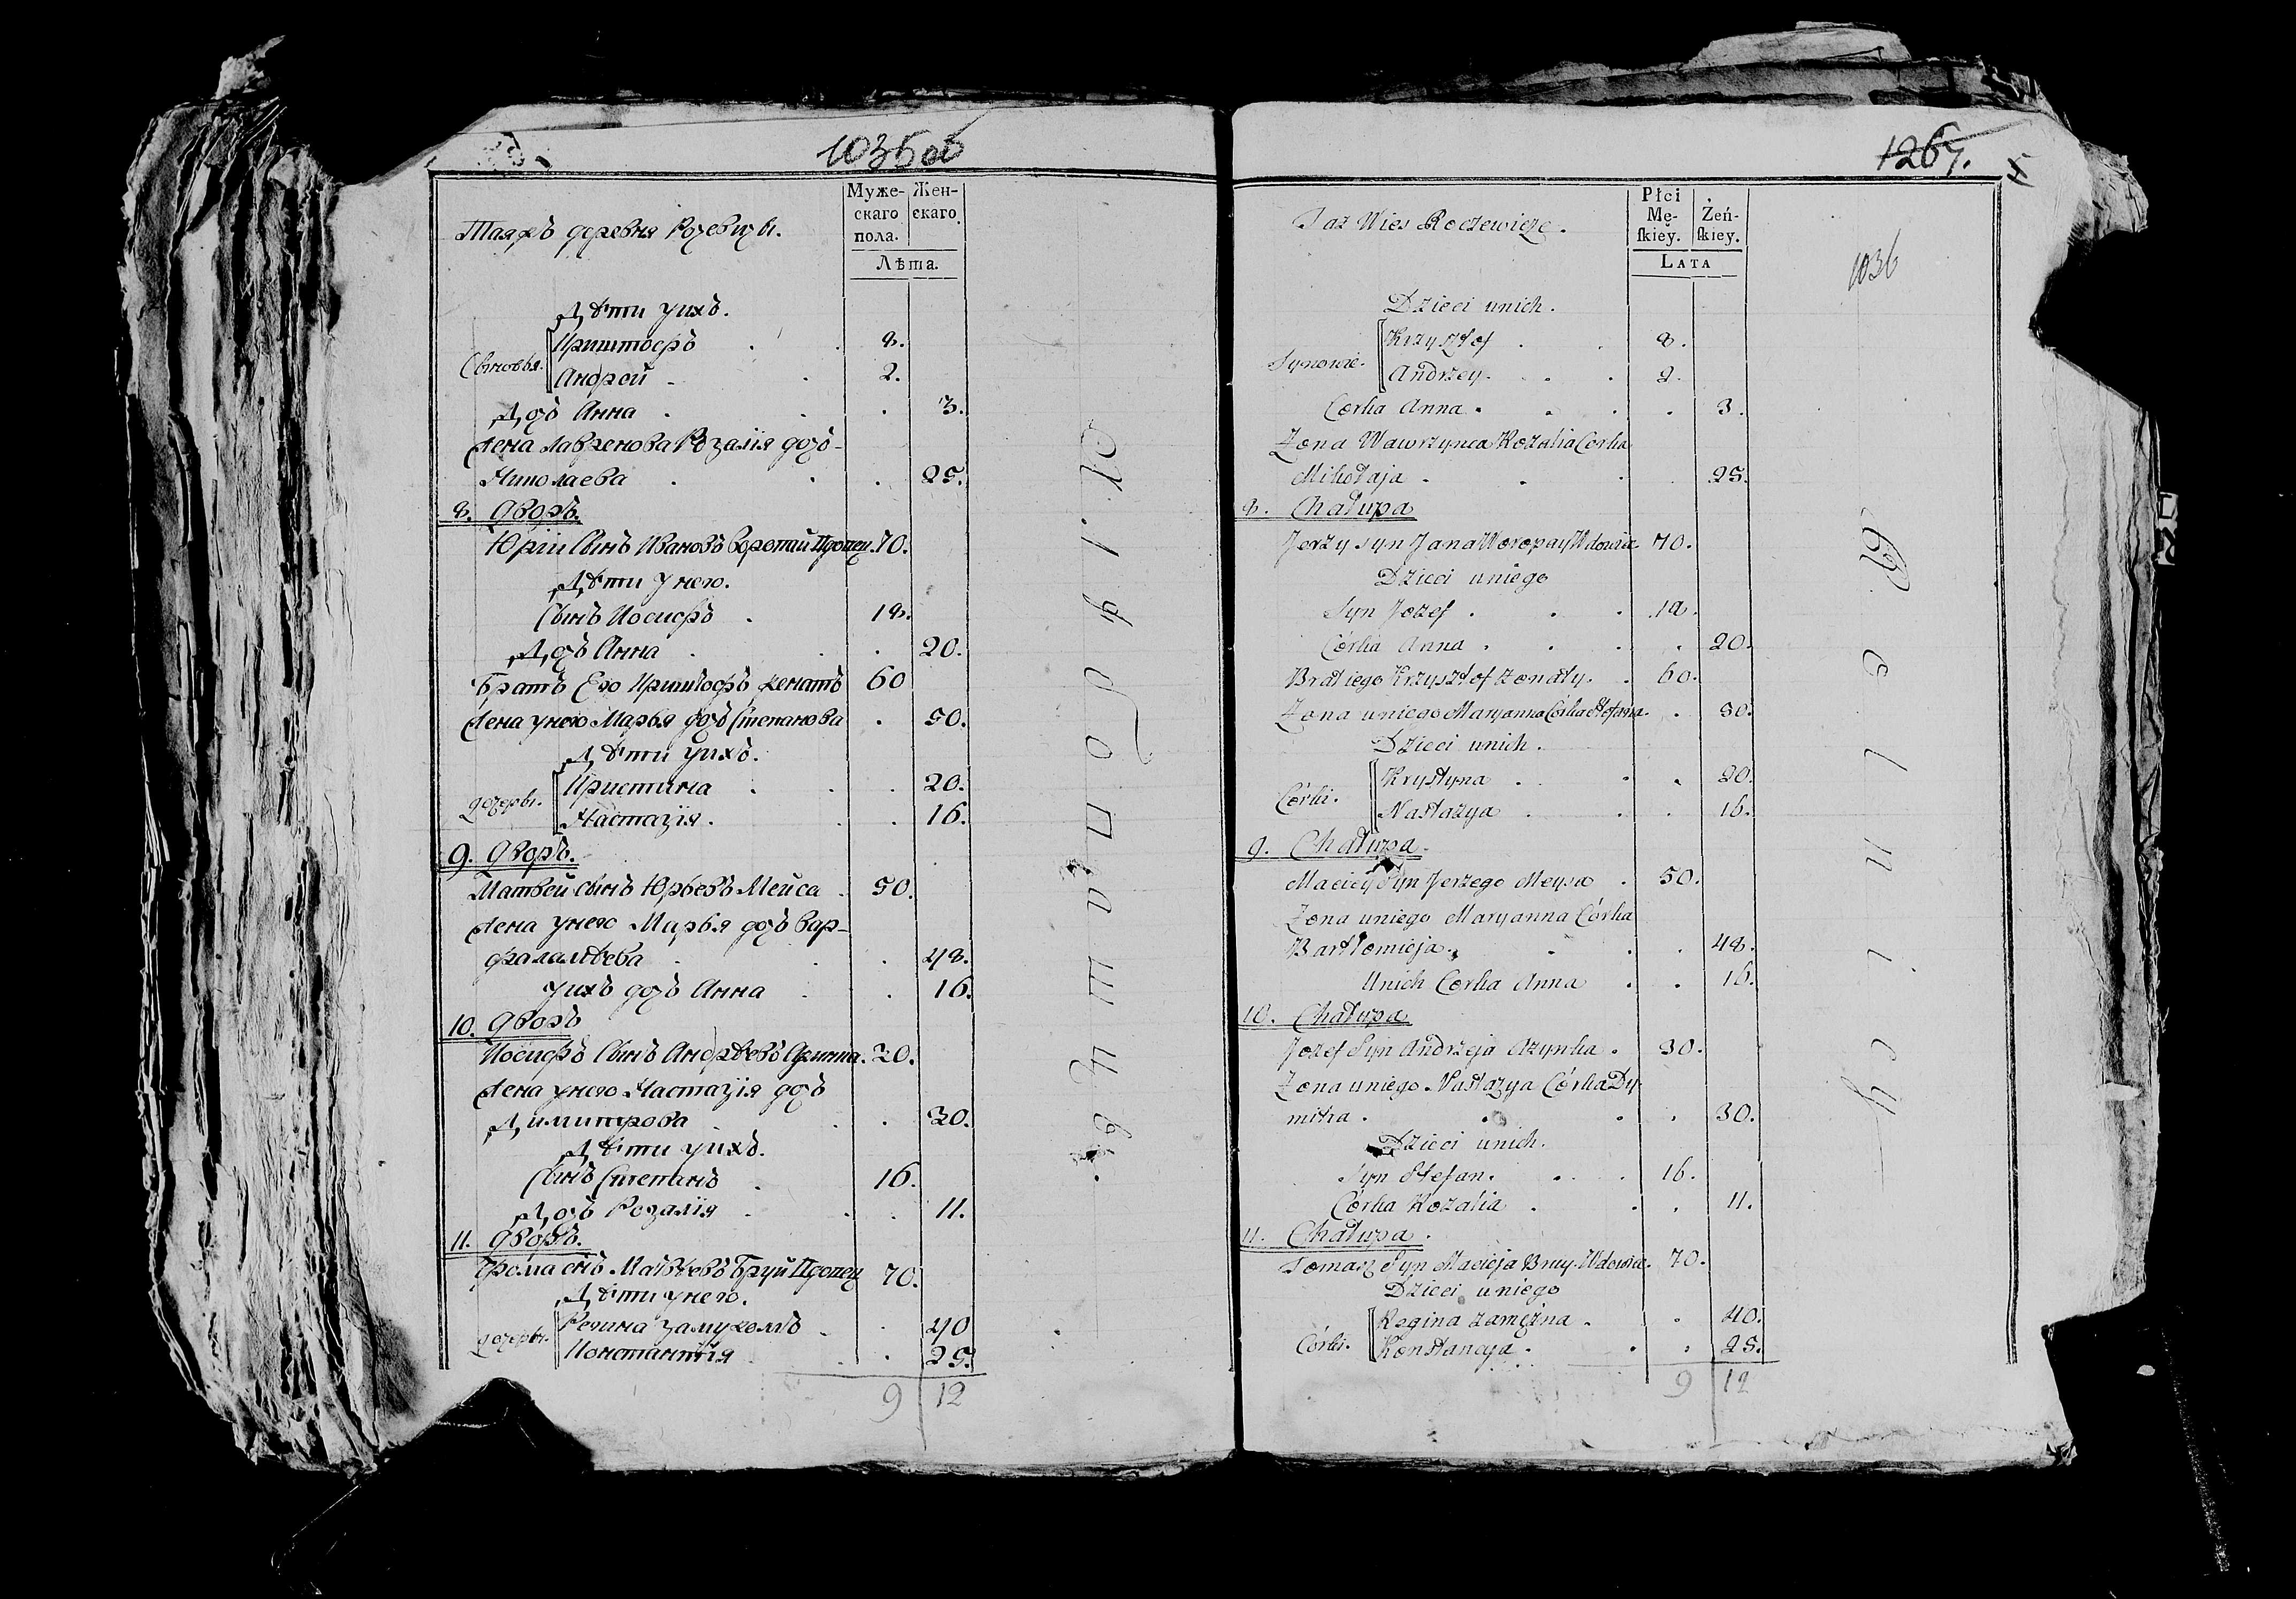 1035об
Муже- Жен-
скаго скаго
пола.
Лѣта.
Таяжъ деревня Рочевичи.
Дѣти уихъ.
Сыновья.
Криштофъ 8.
Андрей 2.
Дочь Анна 3.
Жена Лавренова Розалія дочь
Николаева 25.
8. Дворъ.
Юрій Сынъ Ивановъ Воропай Вдовец. 70.
Дѣти у него.
Сынъ Иосифъ 18.
Дочь Анна 20.
Братъ Его Криштофъ женатъ 60
Жена унего Марья дочь Степанова 50.
Дѣти уихъ.
дочери.
Кристина 20.
Настазія 16.
9. Дворъ.
Матвей сынъ Юрьевъ Мейса 50.
Жена унего Марья дочь Вар-
фаламѣева 48.
уихъ дочь Анна 16.
10. Дворъ
Иосифъ Сынъ Андрѣевъ Ажинка. 30.
Жена унего Настазія дочь
Димитрова 30.
Дѣти уихъ.
Сынъ Степанъ 16.
Дочь Розалія 11.
11. Дворъ.
Фома снъ Матвѣевъ Бруй Вдовец 70.
Дѣти унего.
дочери.
Регина замужомъ 40
Констанція 25.
9 12
К. Шляхты
1267.
1036
Płci
Mę- Żeń-
skiey. skiey.
LATA
Taż Wieś Roczewicze.
Dzieci unich.
Synowie.
Krzysztof 8.
Andrzey 2.
Corka Anna 3.
Żona Wawrzynca Rozalia Corka
Mikołaja 25.
8. Chałupa
Jerzy syn Jana Woropay Wdowiec 70.
Dzieci uniego
Syn Jozef 18.
Córka Anna 20.
Brat iego Krzysztof żonaty 60.
Żona uniego Maryanna Córka Stefana 50.
Dzieci unich.
Córki.
Krystyna 20.
Nastazya 16.
9. Chałupa.
Maciey Syn Jerzego Meysa 50.
Żona uniego Maryanna Córka
Bartłomieja 48.
Unich Corka Anna 16.
10. Chałupa
Jozef Syn Andrzeja Ażynka 30.
Żona uniego Nastazya Córka Dy-
mitra 30.
Dzieci unich.
Syn Stefan 16.
Córka Rozalia 11.
11. Chałupa.
Tomasz Syn Macieja Bruy Wdowiec 70.
Dzieci uniego
Córki.
Regina zamężna 40.
Konstancya 25.
9 12